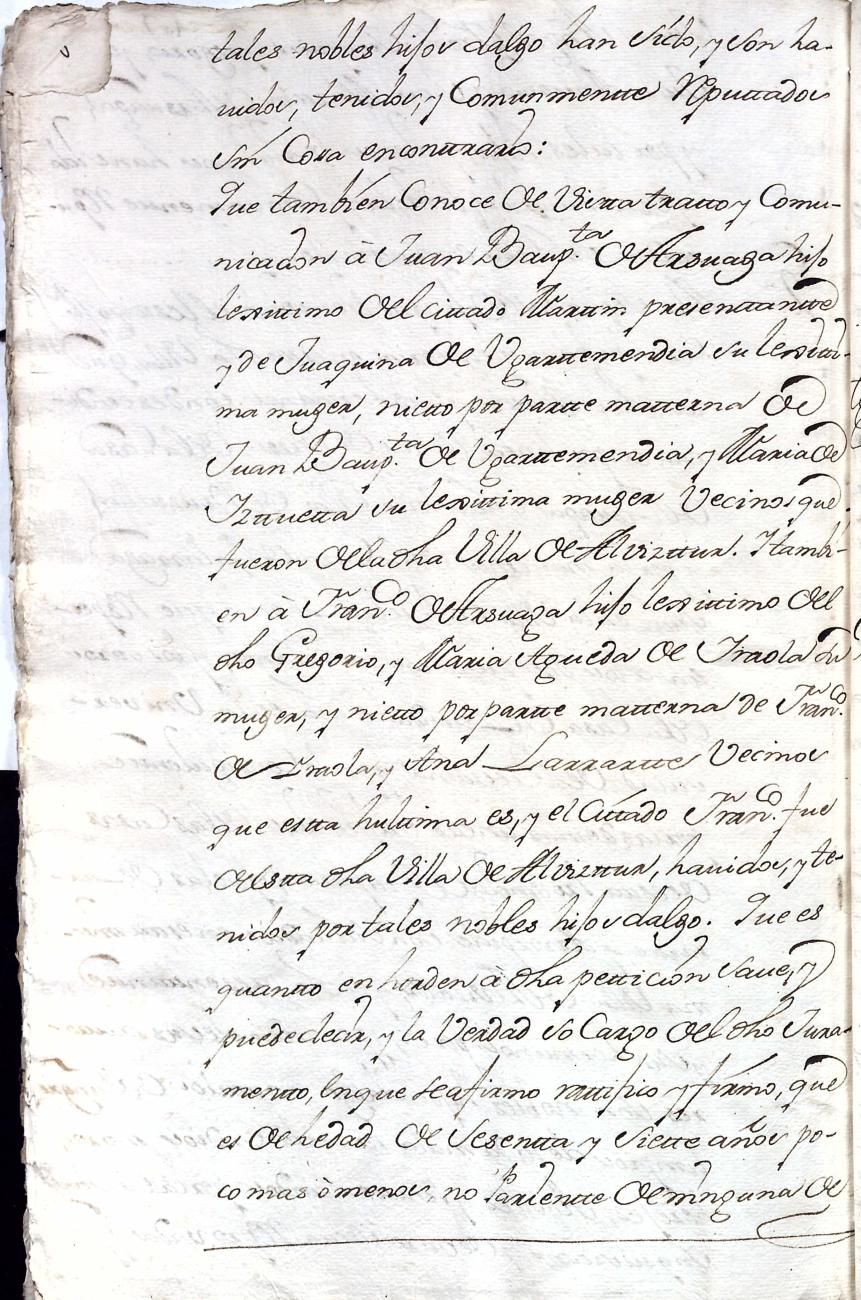 tales nobles hijos dalgo han sido, y son ha-
vidos, tenidos, y Comunmentte Reputtados
sin Cosa en conttrario:
Que tambien Conoce de Vistta tratto y Comu-
nicazion à Juan Baup.ta de Arsuaga hijo
lexittimo del cittado Marttin presenttantte
y de Juaquina de Ugarttemendia su lexitti-
ma muger, nietto por partte matterna de
Juan Baup.ta de Ugarttemendia, y Maria de
Izttuetta su lexittima muger Vecinos que
fueron de la dha Villa de Alvizttur. Y tambi-
en à Fran.co de Arsuaga hijo lexittimo del
dho Gregorio, y Maria Agueda de Iraola su
muger, y nietto por partte matterna de Fran.co
de Iraola, y Ana Larrartte Vecinos
que estta hulttima es, y el Cittado Fran.co fue
de estta dha Villa de Alvizttur, havidos, y te-
nidos por tales nobles hijos dalgo. Que es
quantto en horden à dha petticion save, y
puede decir, y la Verdad so Cargo del dho Jura-
mentto, en que se afirmo rattifico y firmo, que
es de hedad de Sesentta y Siette años po-
co mas ò menos, no Parientte de ninguna de